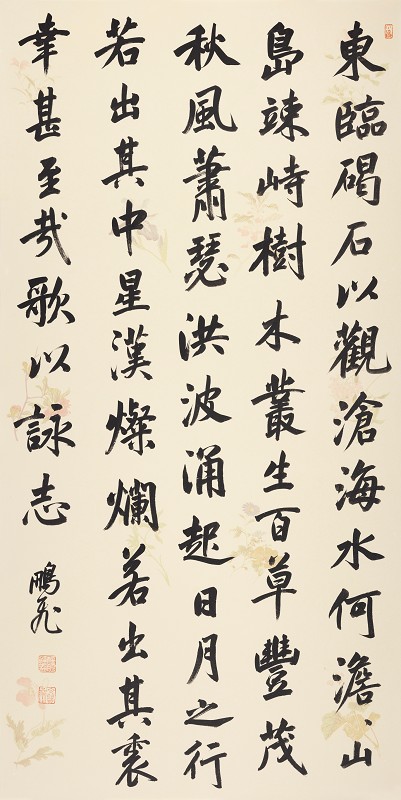 東臨碣石以觀滄海水何澹、山
島竦峙樹木叢生百草豐茂
秋風蕭瑟洪波涌起日月之行
若出其中星漢燦爛若出其裏
幸甚至哉歌以詠志
鵬飛